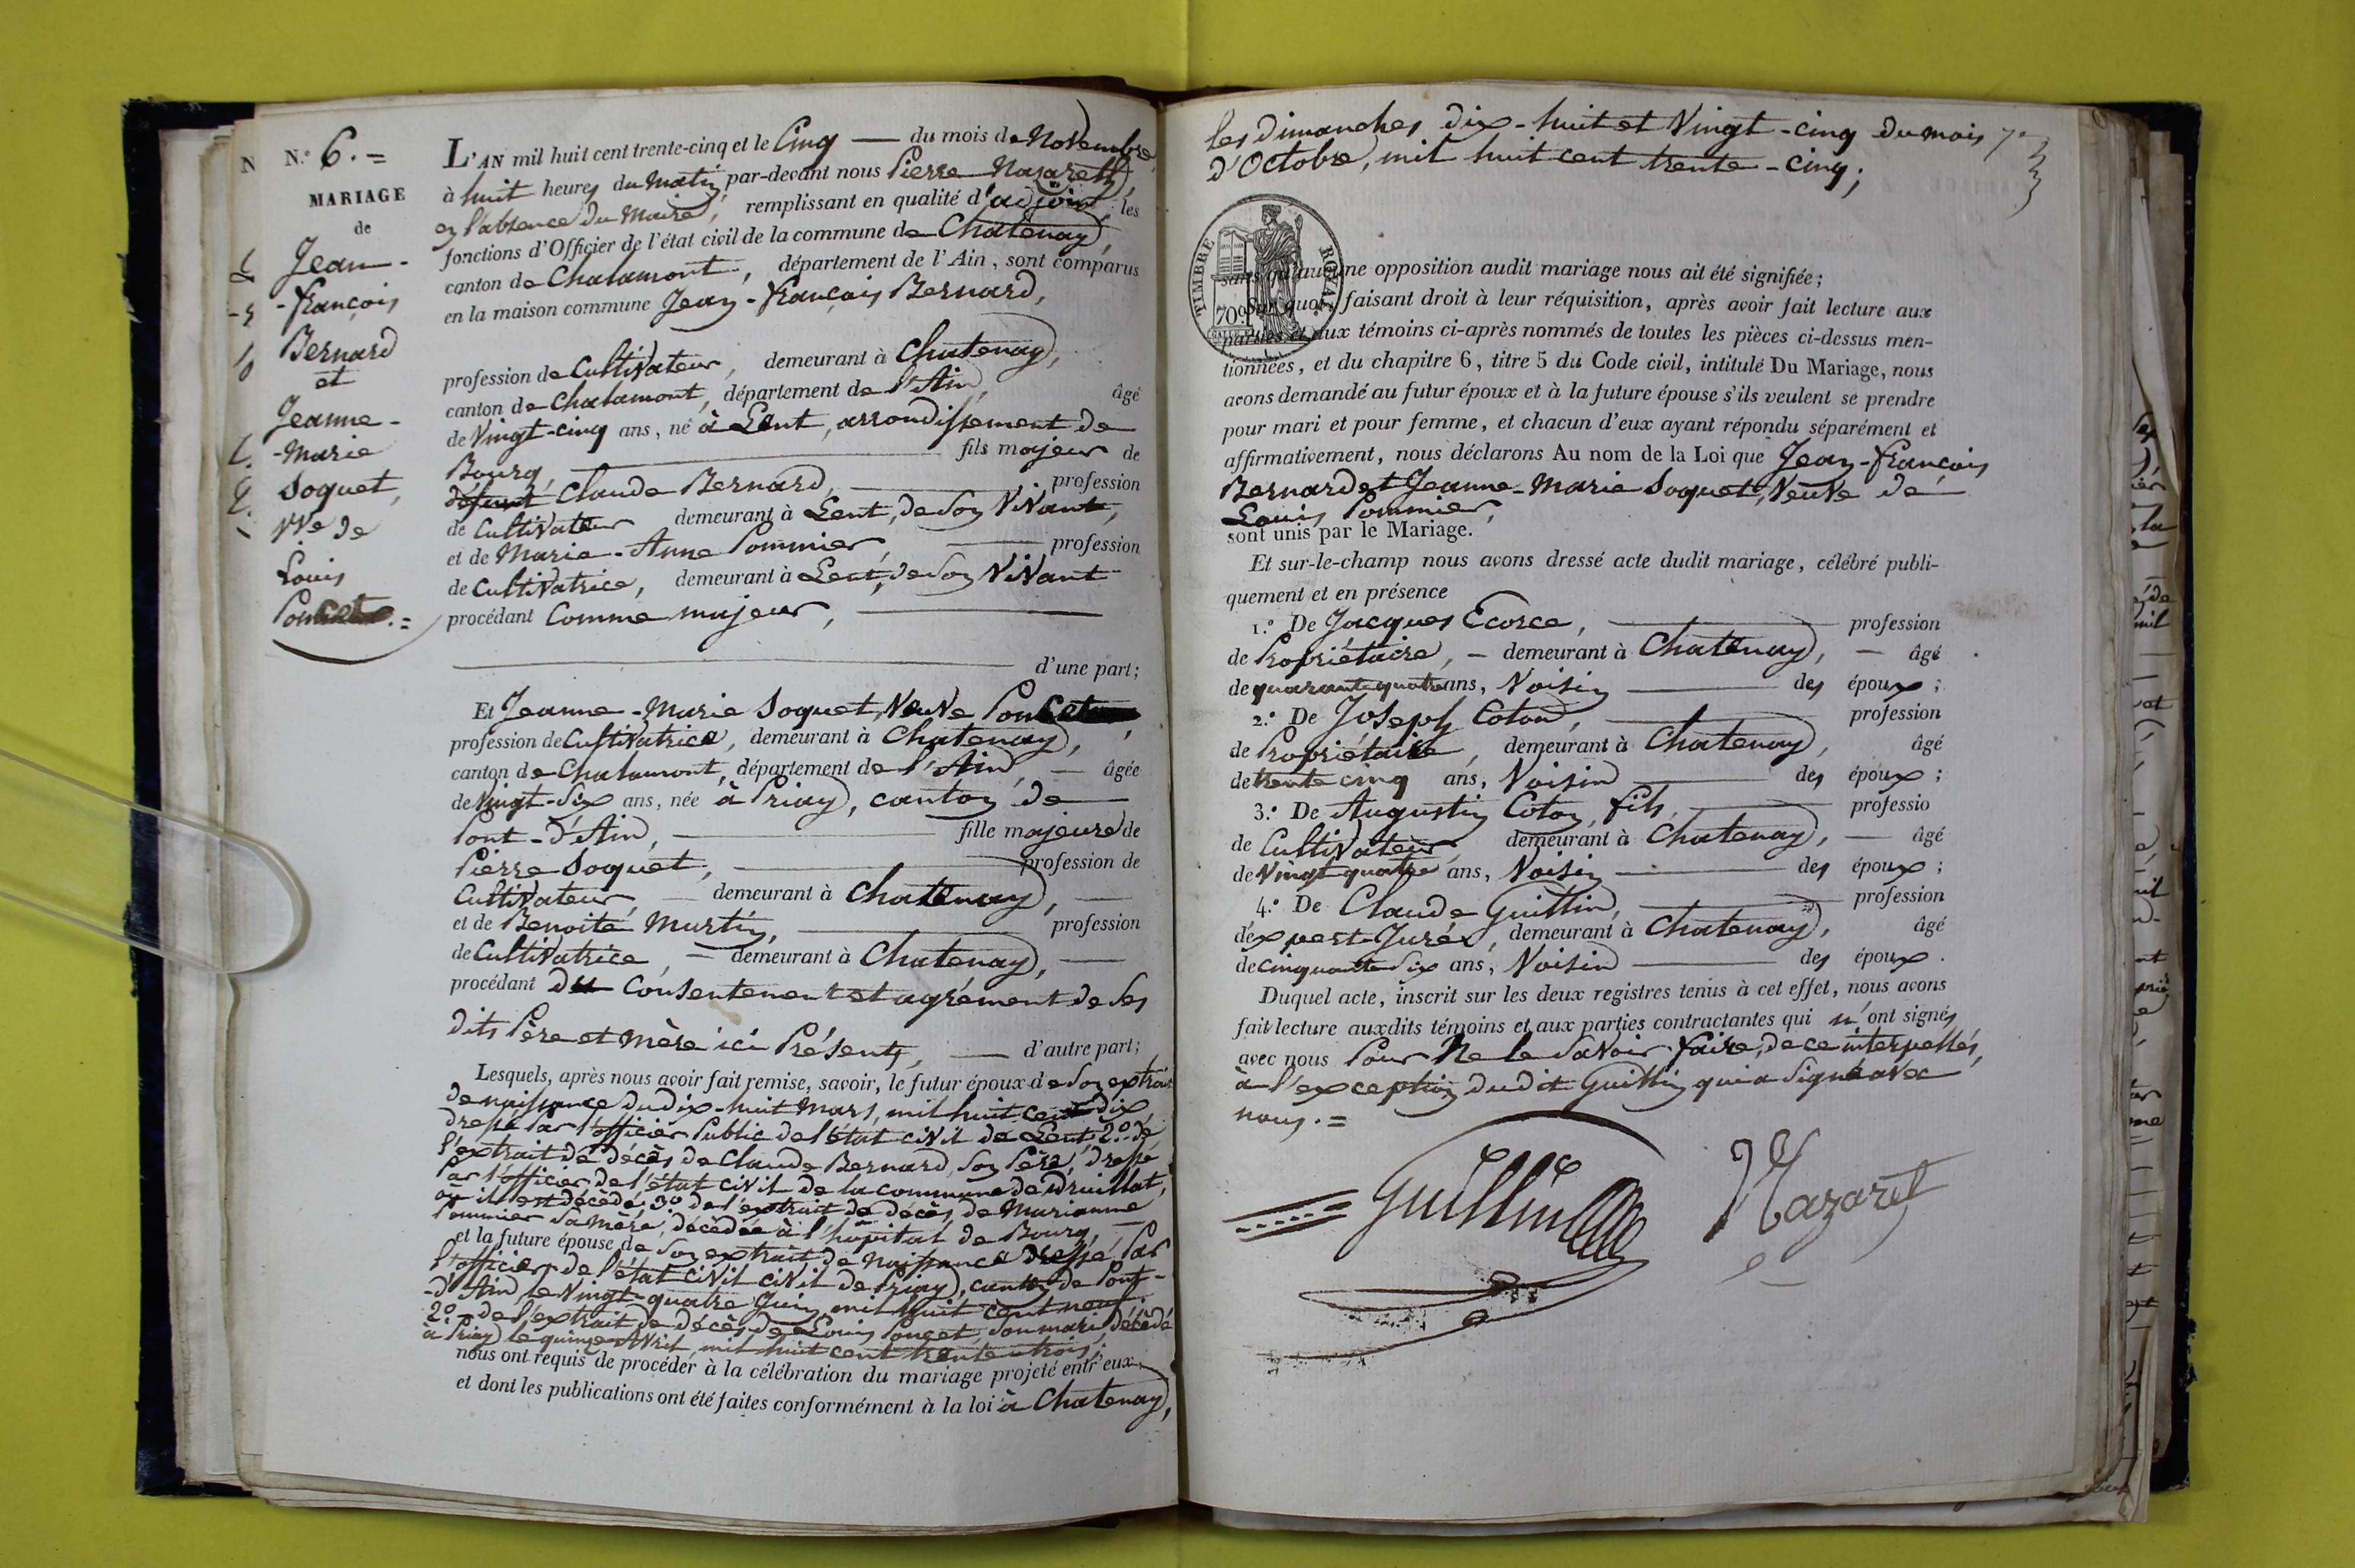 N.° 6. =
MARIAGE
de
Jean-
-françois
Bernard
et
Jeanne-
-Marie
Soquet,
Vve de
Louis
Poncet. =
L'AN mil huit cent trente-cinq et le Cinq — du mois de Novembre
à huit heures du Matin par-devant nous Pierre Nazareth,
en l'absence du Maire, remplissant en qualité d'adjoint, les
fonctions d'Officier de l'état civil de la commune de Chatenay,
canton de Chalamont, département de l'Ain, sont comparus
en la maison commune Jean-françois Bernard,
profession de Cultivateur, demeurant à Chatenay,
canton de Chalamont, département de l'Ain, âgé
de Vingt-cinq ans, né à Lent, arrondissement de
Bourg, — fils majeur de
défunt Claude Bernard, — profession
de Cultivateur demeurant à Lent, de Son Vivant,
et de Marie-Anne Pommier, — profession
de Cultivatrice, demeurant à Lent, de Son Vivant
procédant Comme majeur, —
— d'une part;
Et Jeanne-Marie Soquet, Veuve Poncet
profession de Cultivatrice, demeurant à Chatenay,
canton de Chalamont, département de l'Ain, — âgée
de Vingt-Six ans, née à Priay, canton de
Pont-d'Ain, — fille majeure de
Pierre Soquet, — profession de
Cultivateur, — demeurant à Chatenay, —
et de Benoite Martin, — profession
de Cultivatrice, — demeurant à Chatenay, —
procédant du Consentement et agrément de Ses
dits Père et Mère ici Présents, — d'autre part;
Lesquels, après nous avoir fait remise, savoir, le futur époux de Son extrait
de naissance du dix-huit Mars, mil huit cent dix,
dressé Par l'officier Public de l'état civil de Lent, 2.° de
l'extrait de décès de Claude Bernard, Son Père, dressé
Par l'officier de l'état civil de la commune de Druillat,
où il est décédé, 3.° de l'extrait de décès de Marianne
Pommier Sa Mère, décédée à l'hôpital de Bourg, —
et la future épouse de Son extrait de Naissance dressé Par
l'officier de l'état civil civil de Priay, canton de Pont-
-d'Ain, le Vingt-quatre Juin, mil huit cent neuf.
2.° de l'extrait de décès de Louis Poncet, Son mari, décédé
à Priay le quinze Avril, mil huit cent trente trois;
nous ont requis de procéder à la célébration du mariage projeté entr'eux
et dont les publications ont été faites conformément à la loi à Chatenay,
les Dimanches dix-huit et Vingt-cinq du mois
d'Octobre, mil huit cent trente-cinq;
TIMBRE ROYAL
70c
sans qu'aucune opposition audit mariage nous ait été signifiée;
Sur quoi, faisant droit à leur réquisition, après avoir fait lecture aux
parties et aux témoins ci-après nommés de toutes les pièces ci-dessus men-
tionnées, et du chapitre 6, titre 5 du Code civil, intitulé Du Mariage, nous
avons demandé au futur époux et à la future épouse s'ils veulent se prendre
pour mari et pour femme, et chacun d'eux ayant répondu séparément et
affirmativement, nous déclarons Au nom de la Loi que Jean-François
Bernard et Jeanne-Marie Soquet, Veuve de
Louis Pommier,
sont unis par le Mariage.
Et sur-le-champ nous avons dressé acte dudit mariage, célébré publi-
quement et en présence
1.° De Jacques Ecorce, — profession
de Propriétaire, — demeurant à Chatenay, — âgé
de quarante quatre ans, Voisin — des époux;
2.° De Joseph Coton, — profession
de Propriétaire, demeurant à Chatenay, âgé
de trente cinq ans, Voisin — des époux;
3.° De Augustin Coton, fils, — professio
de Cultivateur, demeurant à Chatenay, — âgé
de Vingt quatre ans, Voisin — des époux;
4.° De Claude Guillin, — profession
d'expert-Juré, demeurant à Chatenay, âgé
de cinquante Six ans, Voisin — des époux.
Duquel acte, inscrit sur les deux registres tenus à cet effet, nous avons
fait lecture auxdits témoins et aux parties contractantes qui n'ont signés
avec nous Pour Ne le Savoir faire, de ce interpellés,
à l'exception dudit Guillin qui a Signé avec
nous. =
Guillin
Nazaret